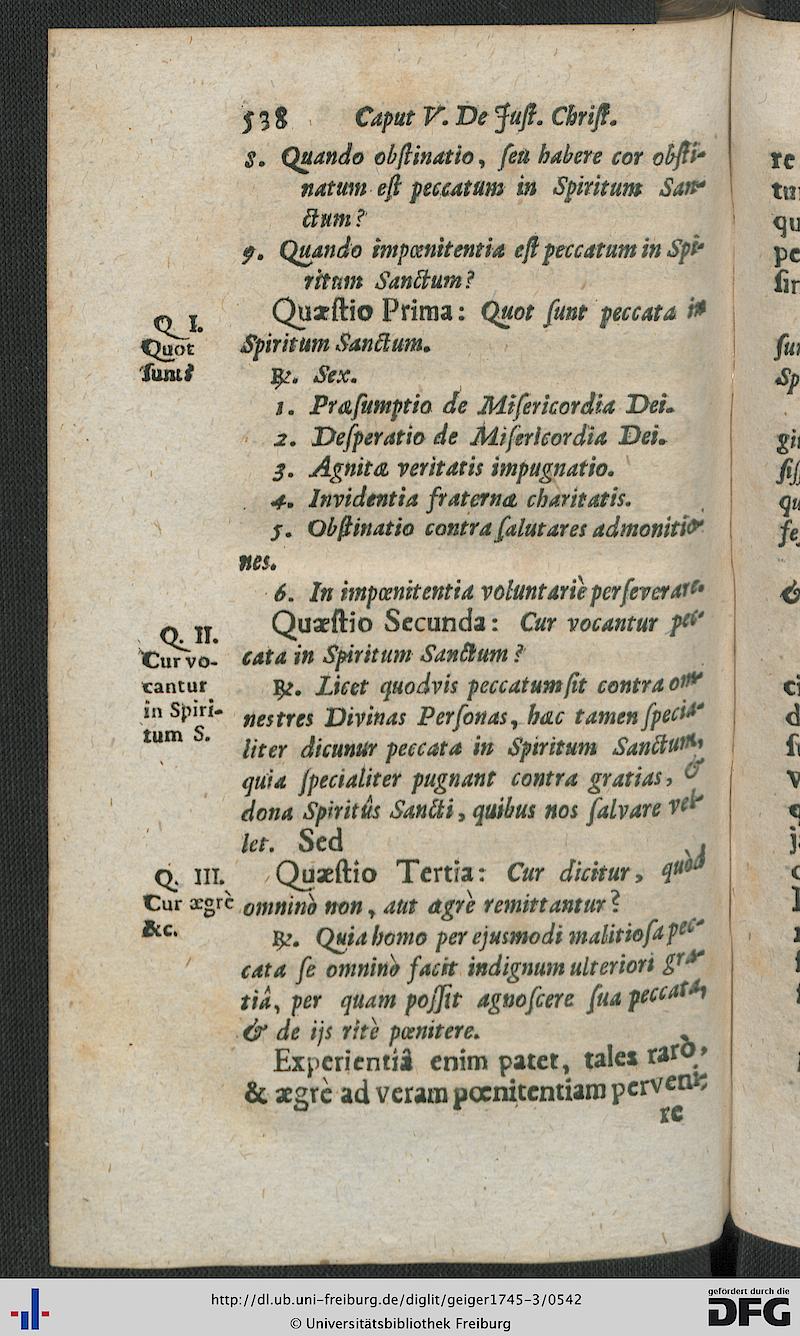 538 Caput V. De Juſt. Chriſt.
8. Quando obſtinatio, ſeu habere cor obſti-
natum eſt peccatum in Spiritum San-
ctum?
9. Quando impœnitentia eſt peccatum in Spi-
ritum Sanctum?
Q I.
Quot
ſunt?
Quæſtio Prima: Quot ſunt peccata in
Spiritum Sanctum.
℞. Sex.
1. Præſumptio de Miſericordia Dei.
2. Deſperatio de Miſericordia Dei.
3. Agnitæ veritatis impugnatio.
4. Invidentia fraternæ charitatis.
5. Obſtinatio contra ſalutares admonitio-
nes.
6. In impœnitentia voluntariè perſeverare.
Q. II.
Cur vo-
cantur
in Spiri-
tum S.
Quæſtio Secunda: Cur vocantur pec-
cata in Spiritum Sanctum?
℞. Licet quodvis peccatum ſit contra om-
nes tres Divinas Perſonas, hæc tamen ſpecia-
liter dicunur peccata in Spiritum Sanctum,
quia ſpecialiter pugnant contra gratias, &
dona Spiritûs Sancti, quibus nos ſalvare vel-
let. Sed
Q. III.
Cur ægrè
&c.
Quæſtio Tertia: Cur dicitur, quòd
omninò non, aut ægrè remittantur?
℞. Quia homo per ejusmodi malitioſa pec-
cata ſe omninò facit indignum ulteriori gra-
tiâ, per quam poſſit agnoſcere ſua peccata,
& de ijs ritè pœnitere.
Experientiâ enim patet, tales rarò,
& ægrè ad veram pœnitentiam perveni-
re
re
tu
qu
pe
ſir
ſu
Sp
gi
ſiſ
qu
fe
&
ci
d
ſ
v
http://dl.ub.uni-freiburg.de/diglit/geiger1745-3/0542
© Universitätsbibliothek Freiburg
gefördert durch die
DFG